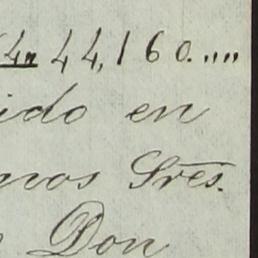 44,160.,,,,
ido en
nos Sres.
Don